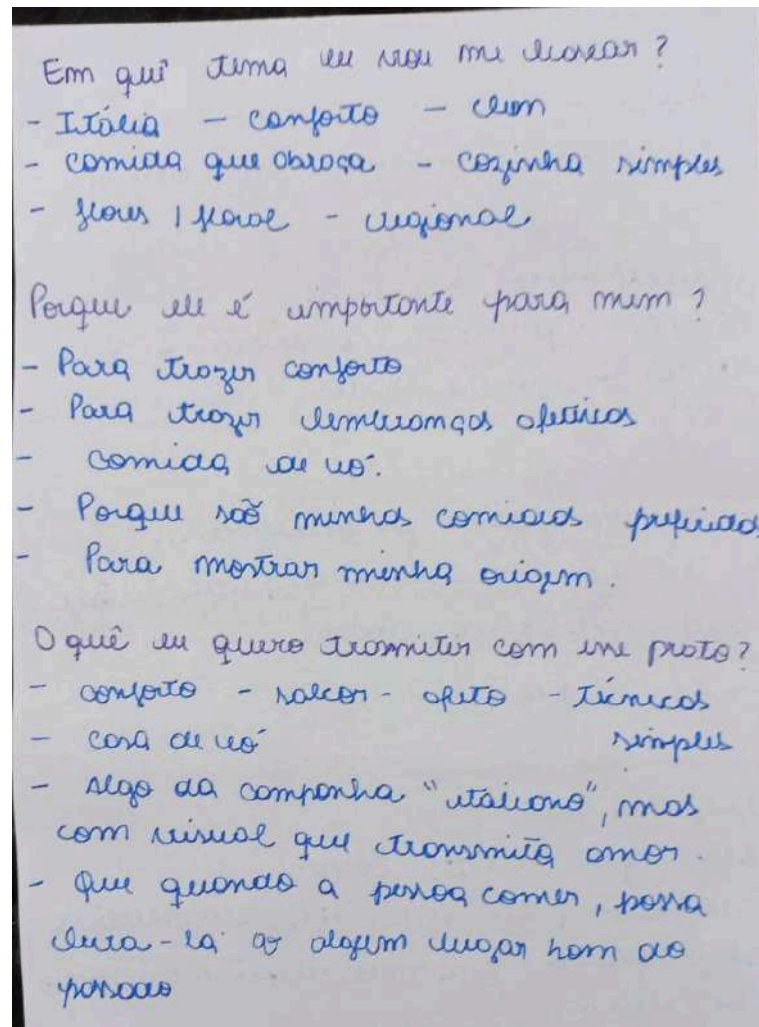 Em quê tema eu vou me basear?
- Itália - conforto - clean
- comida que abraça - cozinha simples
- flores / floral - regional
Porque ele é importante para mim?
- Para trazer conforto
- Para trazer lembranças afetivas
- comida de vó.
- Porque são minhas comidas preferidas
- Para mostrar minha origem.
O quê eu quero transmitir com esse prato?
- conforto - sabor - afeto - técnicas
simples
- casa de vó
- Algo da campanha "italiana", mas
com visual que transmita amor.
- Que quando a pessoa comer, possa
leva-la a algum lugar bom do
passado